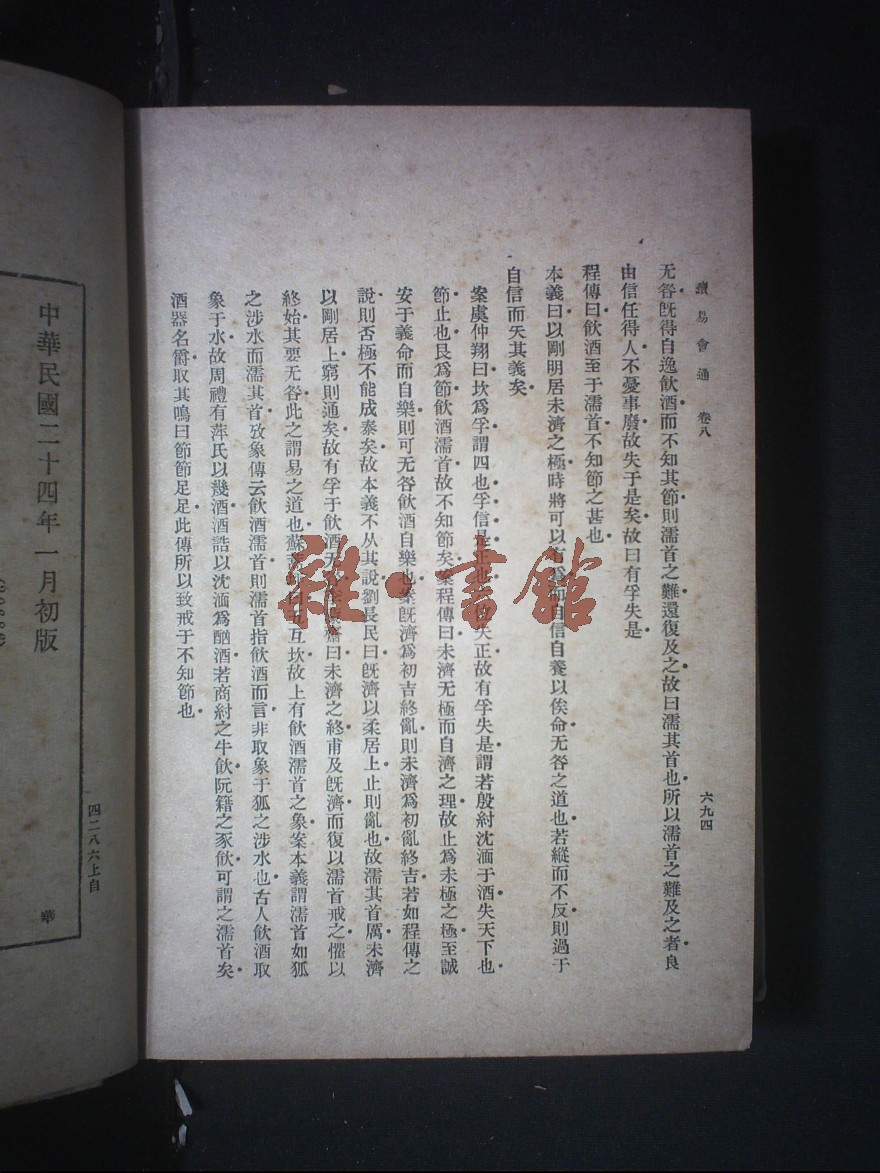 讀易會通　卷八
六九四
无咎旣得自逸飲酒而不知其節則濡首之難還復及之故曰濡其首也所以濡首之難及之者良
由信任得人不憂事廢故失于是矣故曰有孚失是
程傳曰飲酒至于濡首不知節之甚也
本義曰以剛明居未濟之極時將可以有爲而自信自養以俟命无咎之道也若縱而不反則過于
自信而失其義矣
案虞仲翔曰坎爲孚謂四也孚信是正也六位失正故有孚失是謂若殷紂沈湎于酒失天下也
節止也艮爲節飲酒濡首故不知節矣案程傳曰未濟无極而自濟之理故止爲未極之極至誠
安于義命而自樂則可无咎飲酒自樂也案旣濟爲初吉終亂則未濟爲初亂終吉若如程傳之
說則否極不能成泰矣故本義不从其說劉長民曰旣濟以柔居上止則亂也故濡其首厲未濟
以剛居上窮則通矣故有孚于飲酒无齋曰未濟之終甫及旣濟而復以濡首戒之懼以
終始其要无咎此之謂易之道也蘇曰五互坎故上有飲酒濡首之象案本義謂濡首如狐
之涉水而濡其首攷象傳云飲酒濡首則濡首指飲酒而言非取象于狐之涉水也古人飲酒取
象于水故周禮有萍氏以幾酒酒誥以沈湎爲酗酒若商紂之牛飲阮籍之豕飲可謂之濡首矣
酒器名爵取其鳴曰節節足足此傳所以致戒于不知節也
中華民國二十四年一月初版
四二八六上自
華
雜·書館